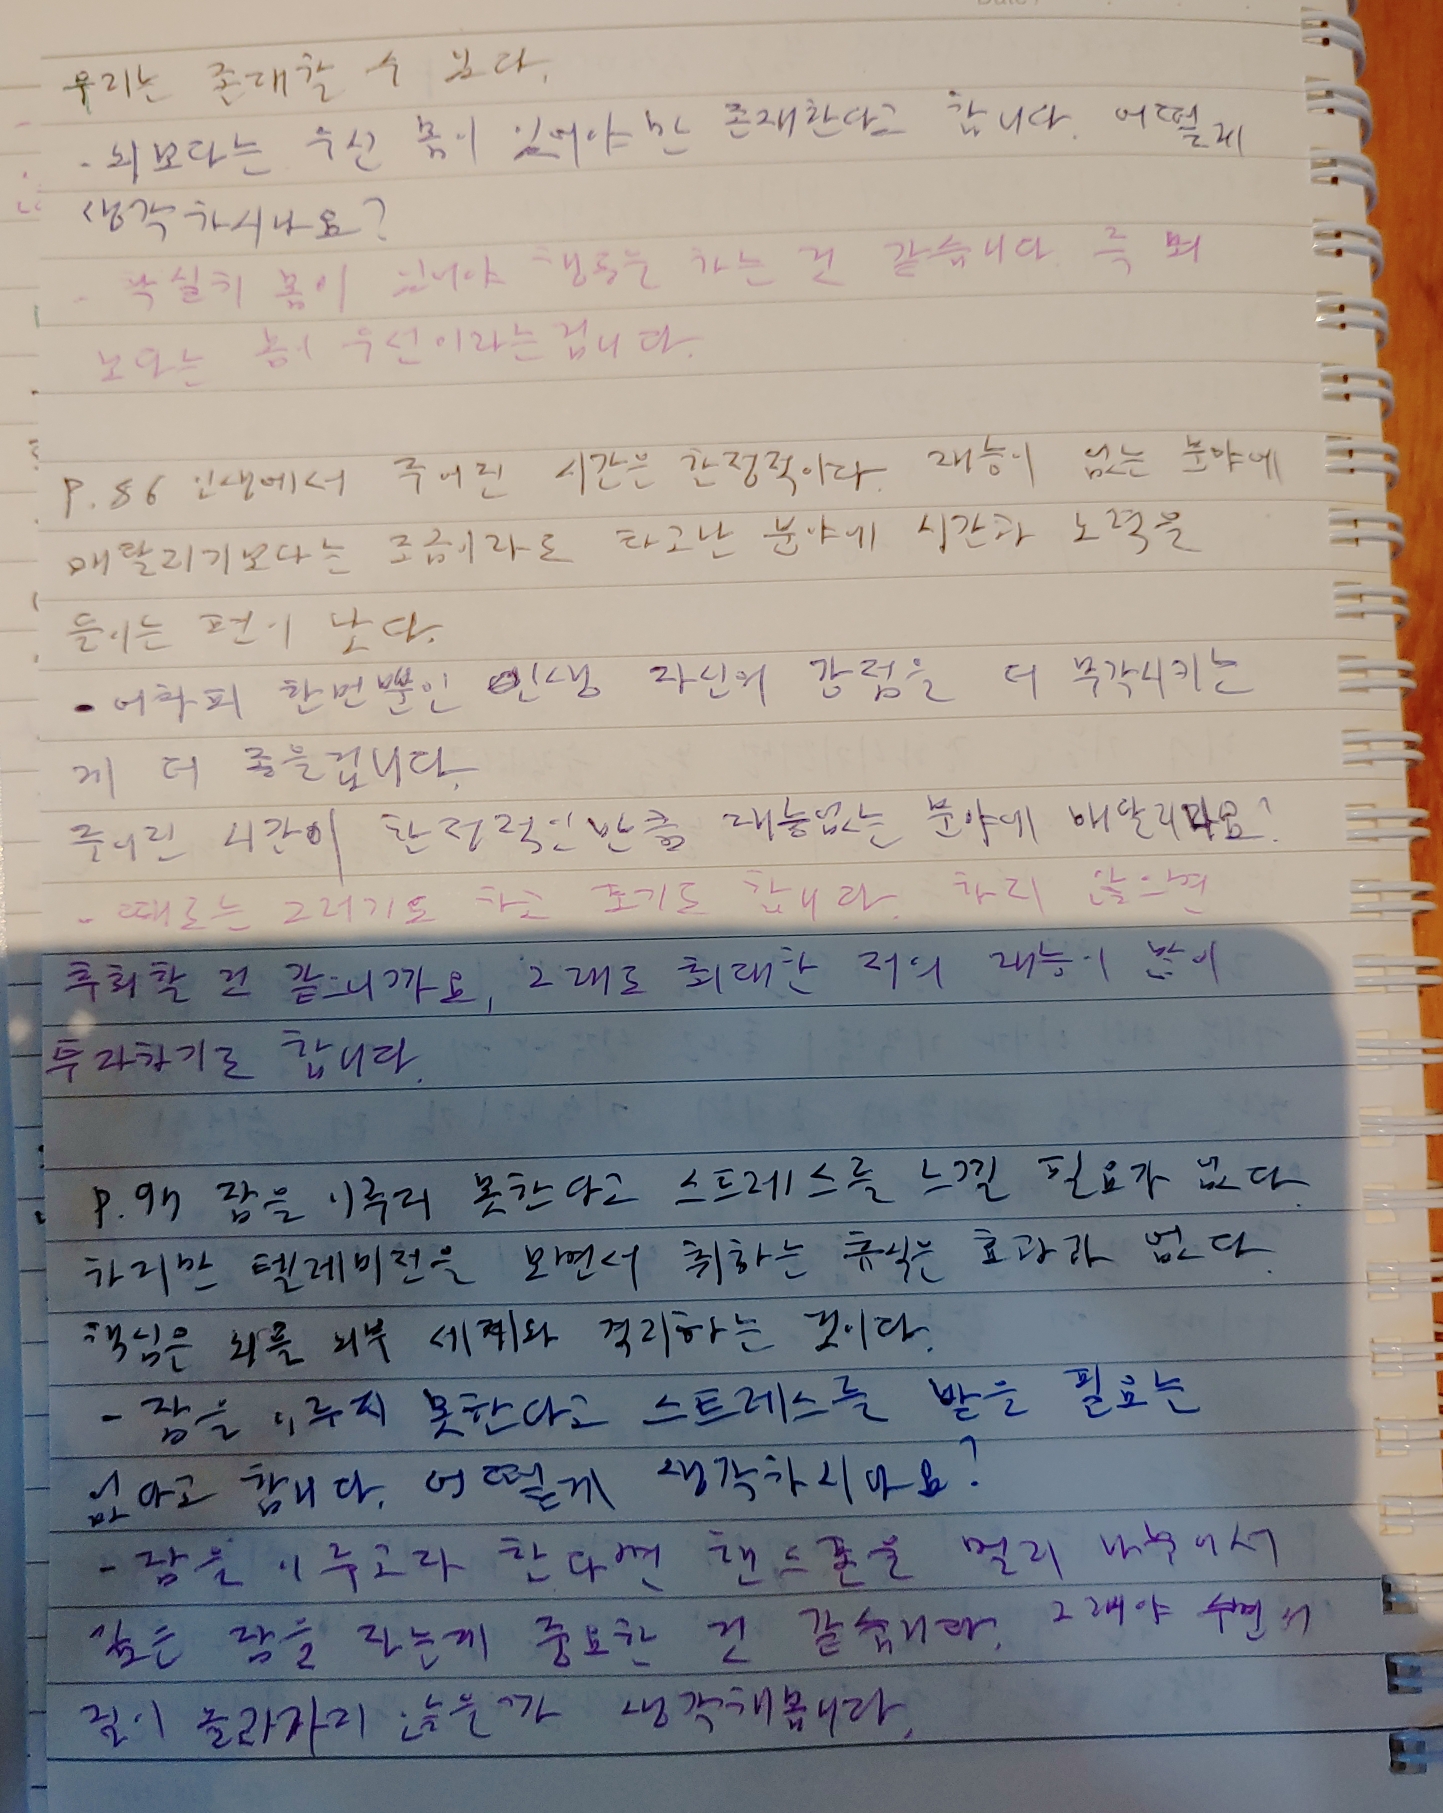 우리는 존재할 수 없다.
- 뇌보다는 우선 몸이 있어야만 존재한다고 합니다. 어떻게
생각하시나요?
- 확실히 몸이 있어야 행동을 하는 건 같습니다. 즉 뇌
보다는 몸이 우선이라는겁니다.
P.86 인생에서 주어진 시간은 한정적이다. 재능이 없는 분야에
매달리기보다는 조금이라도 타고난 분야에 시간과 노력을
들이는 편이 낫다.
- 어차피 한번뿐인 인생 자신의 강점을 더 부각시키는
게 더 좋을겁니다.
주어진 시간이 한정적인만큼 재능없는 분야에 매달리나요?
- 때로는 그러기도 하고 포기도 합니다. 하지 않으면
후회할 건 같으니까요, 그래도 최대한 저의 재능이 많이
투자하기로 합니다.
P.97 잠을 이루지 못한다고 스트레스를 느낄 필요가 없다.
하지만 텔레비전을 보면서 취하는 휴식은 효과가 없다.
핵심은 뇌를 외부 세계와 격리하는 것이다.
- 잠을 이루지 못한다고 스트레스를 받을 필요는
없다고 합니다. 어떻게 생각하시나요?
- 잠을 이루고자 한다면 핸드폰을 멀리 놔두어서
깊은 잠을 자는게 중요한 건 같습니다. 그래야 수면의
질이 올라가지 않을까 생각해봅니다.